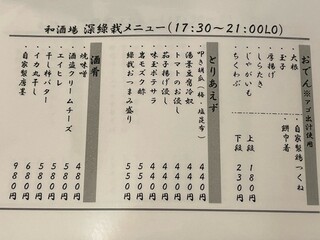 和酒場 深緑栽メニュー(17:30~21:00LO)
おでん ※アゴ出汁使用
・大根
・玉子
・厚揚げ
・しらたき
・じゃがいも
・ちくわぶ
・自家製鶏つくね
・餅巾着
上段 180円
下段 230円
とりあえず
・叩き胡瓜(梅・塩昆布) 440円
・湯葉豆腐冷奴 440円
・トマトのお浸し 440円
・茄子の揚げ浸し
・味玉ポテサラ
・岩もずく酢 550円
・緑栽おつまみ盛り 550円
酒肴
・焼味噌 480円
・酒盗クリームチーズ 580円
・エイヒレ 580円
・干し芋バター 580円
・イカ丸干し 680円
・自家製唐墨 980円